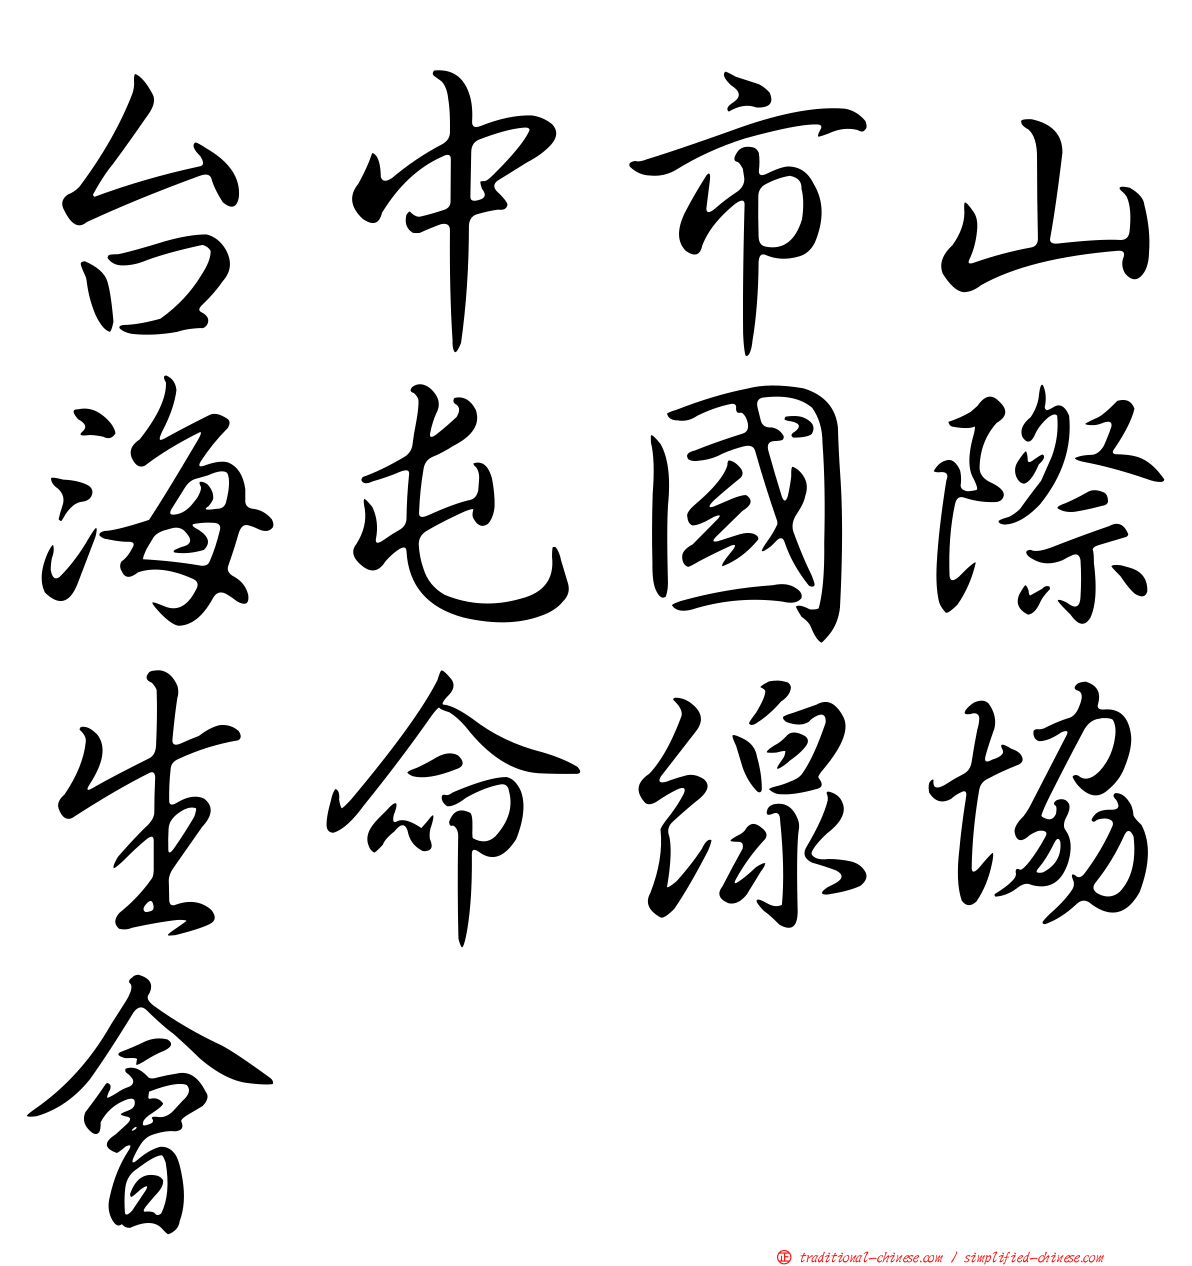 台中市山
海屯國際
生命線協
會
㊣ traditional-chinese.com / simplified-chinese.com